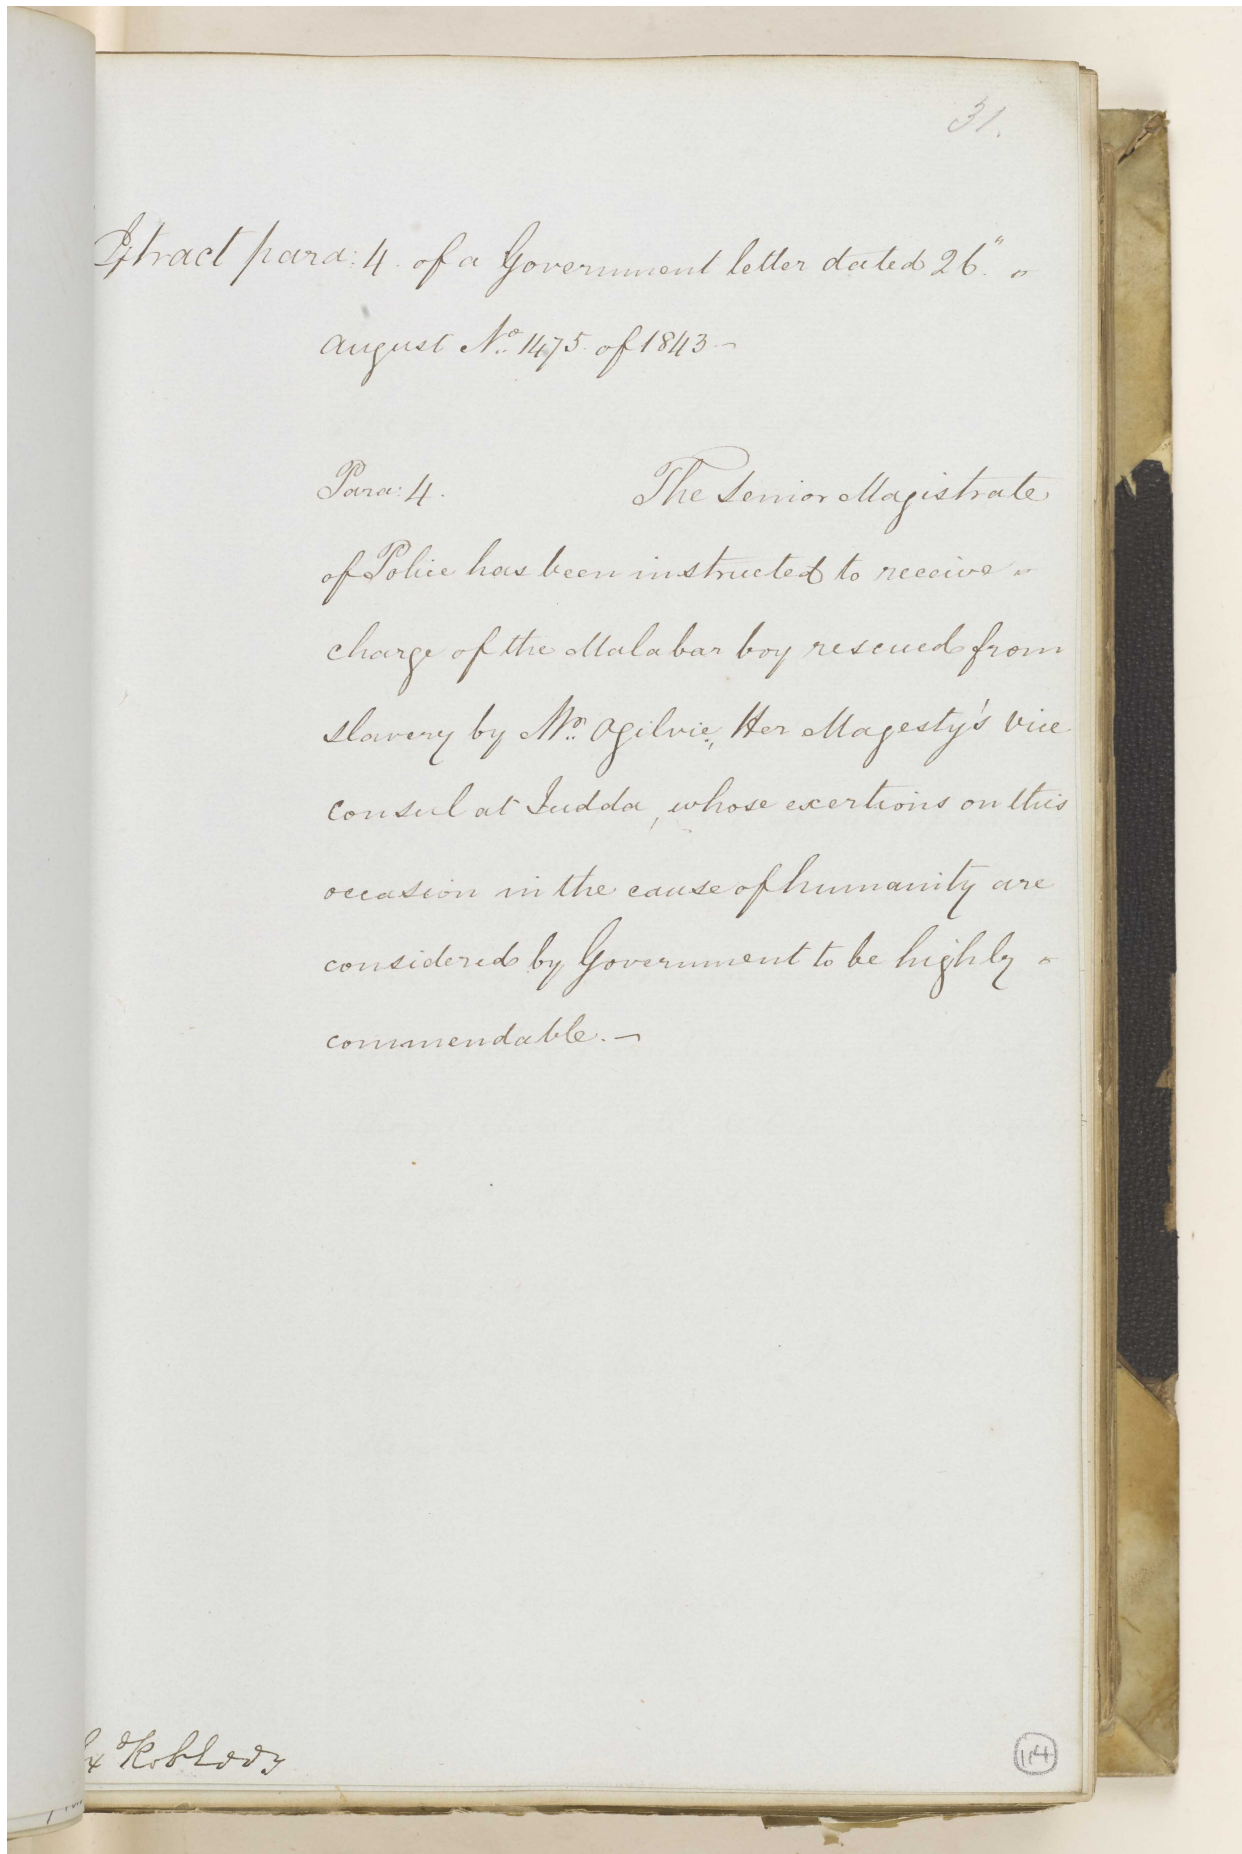 31.
Extract para: 4. of a Government letter dated 26."
august No. 1475. of 1843 -
Para: 4. The Senior Magistrate
of Police has been instructed to receive
charge of the Malabar boy rescued from
slavery by Mr. Ogilvie, Her Magesty's vice
consul at Judda, whose exertions on this
occasion in the cause of humanity are
considered by Government to be highly
commendable. -
114